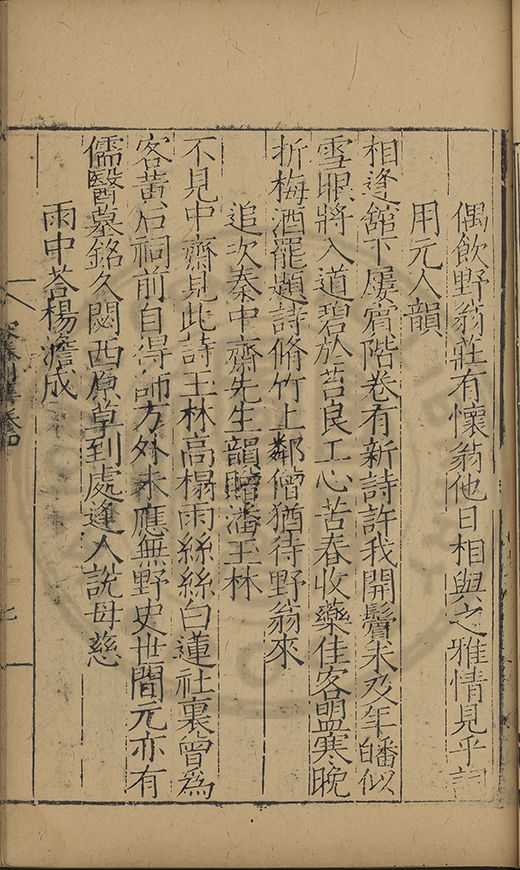 偶飲野翁莊有懷翁他日相與之雅情見乎詞
用元人韻
相逢舘下屢賓階卷有新詩許我開鬢未及年皤似
雪眼將入道碧於苔良工心苦春收藥住客盟寒晚
折梅酒罷題詩脩竹上鄰僧猶待野翁來
追次秦中齋先生韻贈潘玉林
不見中齋見此詩玉林高榻雨絲絲白蓮社裏曾為
客黃石祠前自得師方外未應無野史世間元亦有
儒醫墓銘久閟西原草到處逢人說母慈
雨中荅楊澹成
七